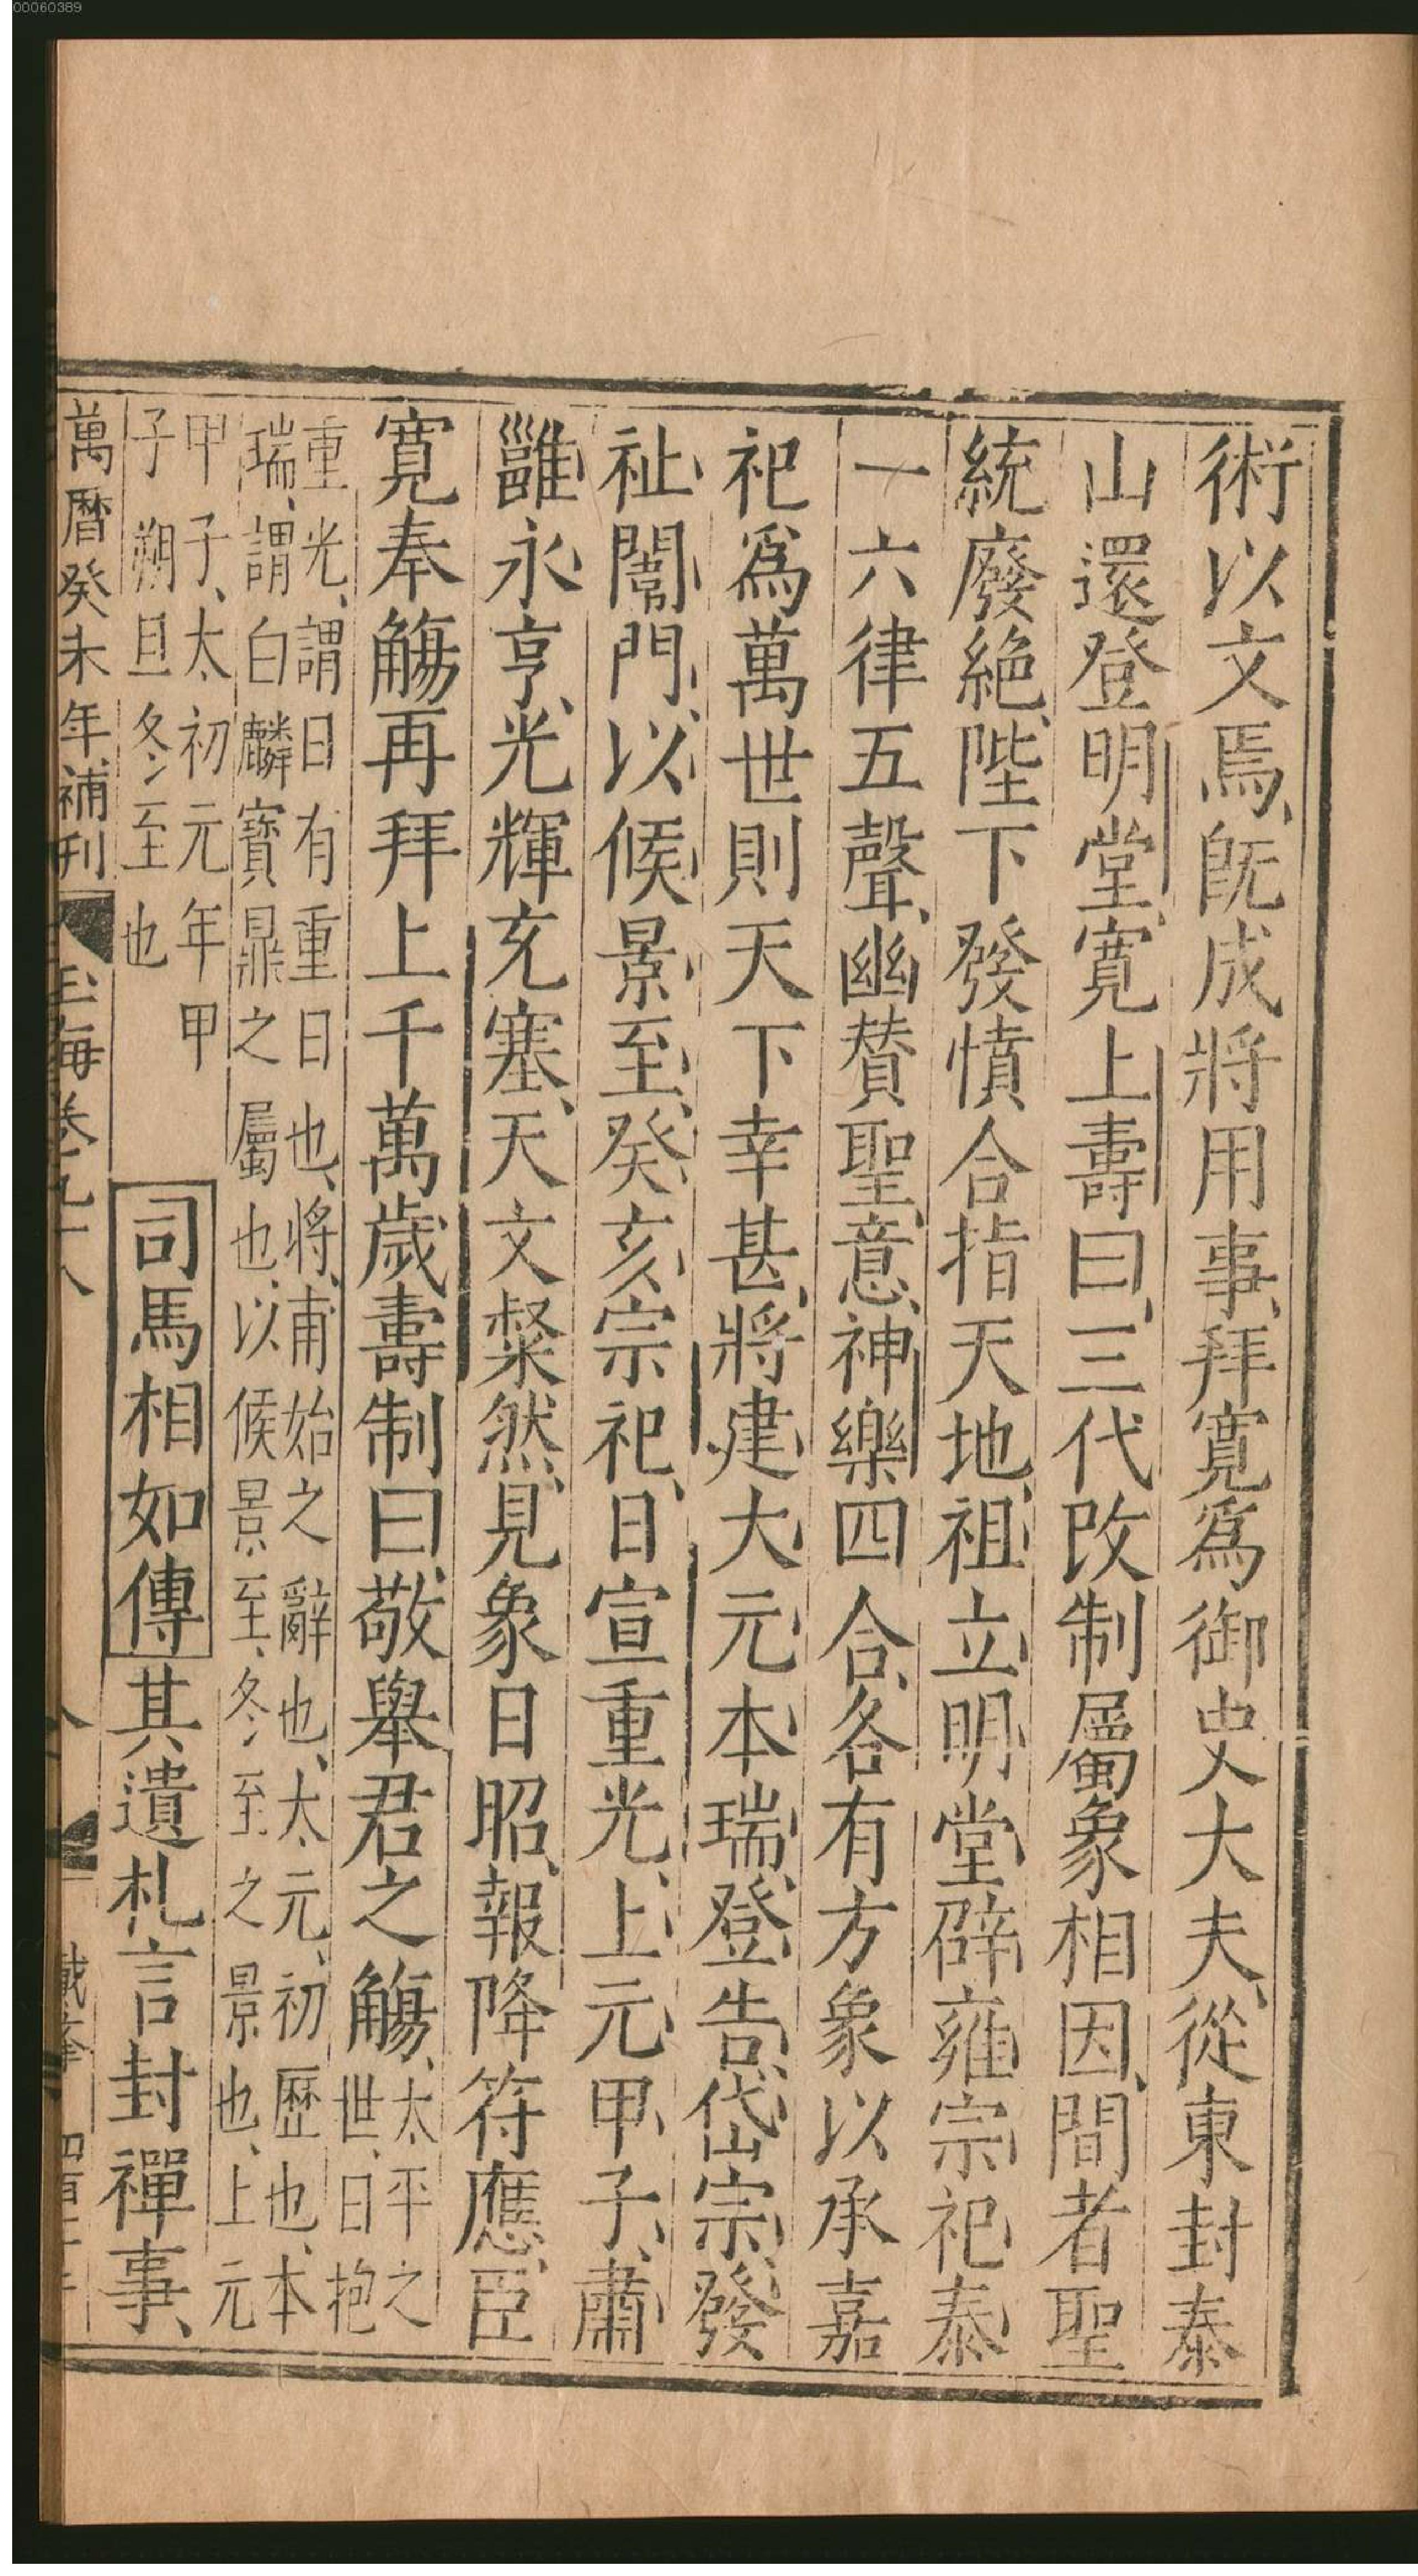 00060389
術以文焉、旣成將用事、拜寛爲御史大夫、從東封泰
山還登明堂、寛上壽曰、三代改制屬象相因、間者聖
統廢絶、陛下發憤合指天地、祖立明堂辟雍宗祀泰
一六律五聲、幽賛聖意、神樂四合、各有方象以承嘉
祀爲萬世則天下幸甚、將建大元本瑞、登告、岱宗、發
祉闓門、以候景至、癸亥宗祀、日宣重光、上元甲子、肅
雝永亨、光輝充塞、天文粲然、見象日昭、報降符應、臣
寛奉觴再拜上千萬歲壽制曰、敬舉君之觴、太平之
世、日抱
重光、謂日有重日也、將、甫始之辭也、太元、初歷也、本
瑞、謂白麟寶鼎之屬也、以候景至、冬至之景也、上元
甲子、太初元年甲
子朔旦冬至也
司馬相如傳其遺札言封禪事、
萬曆癸未年補刊 玉海卷九十八 八